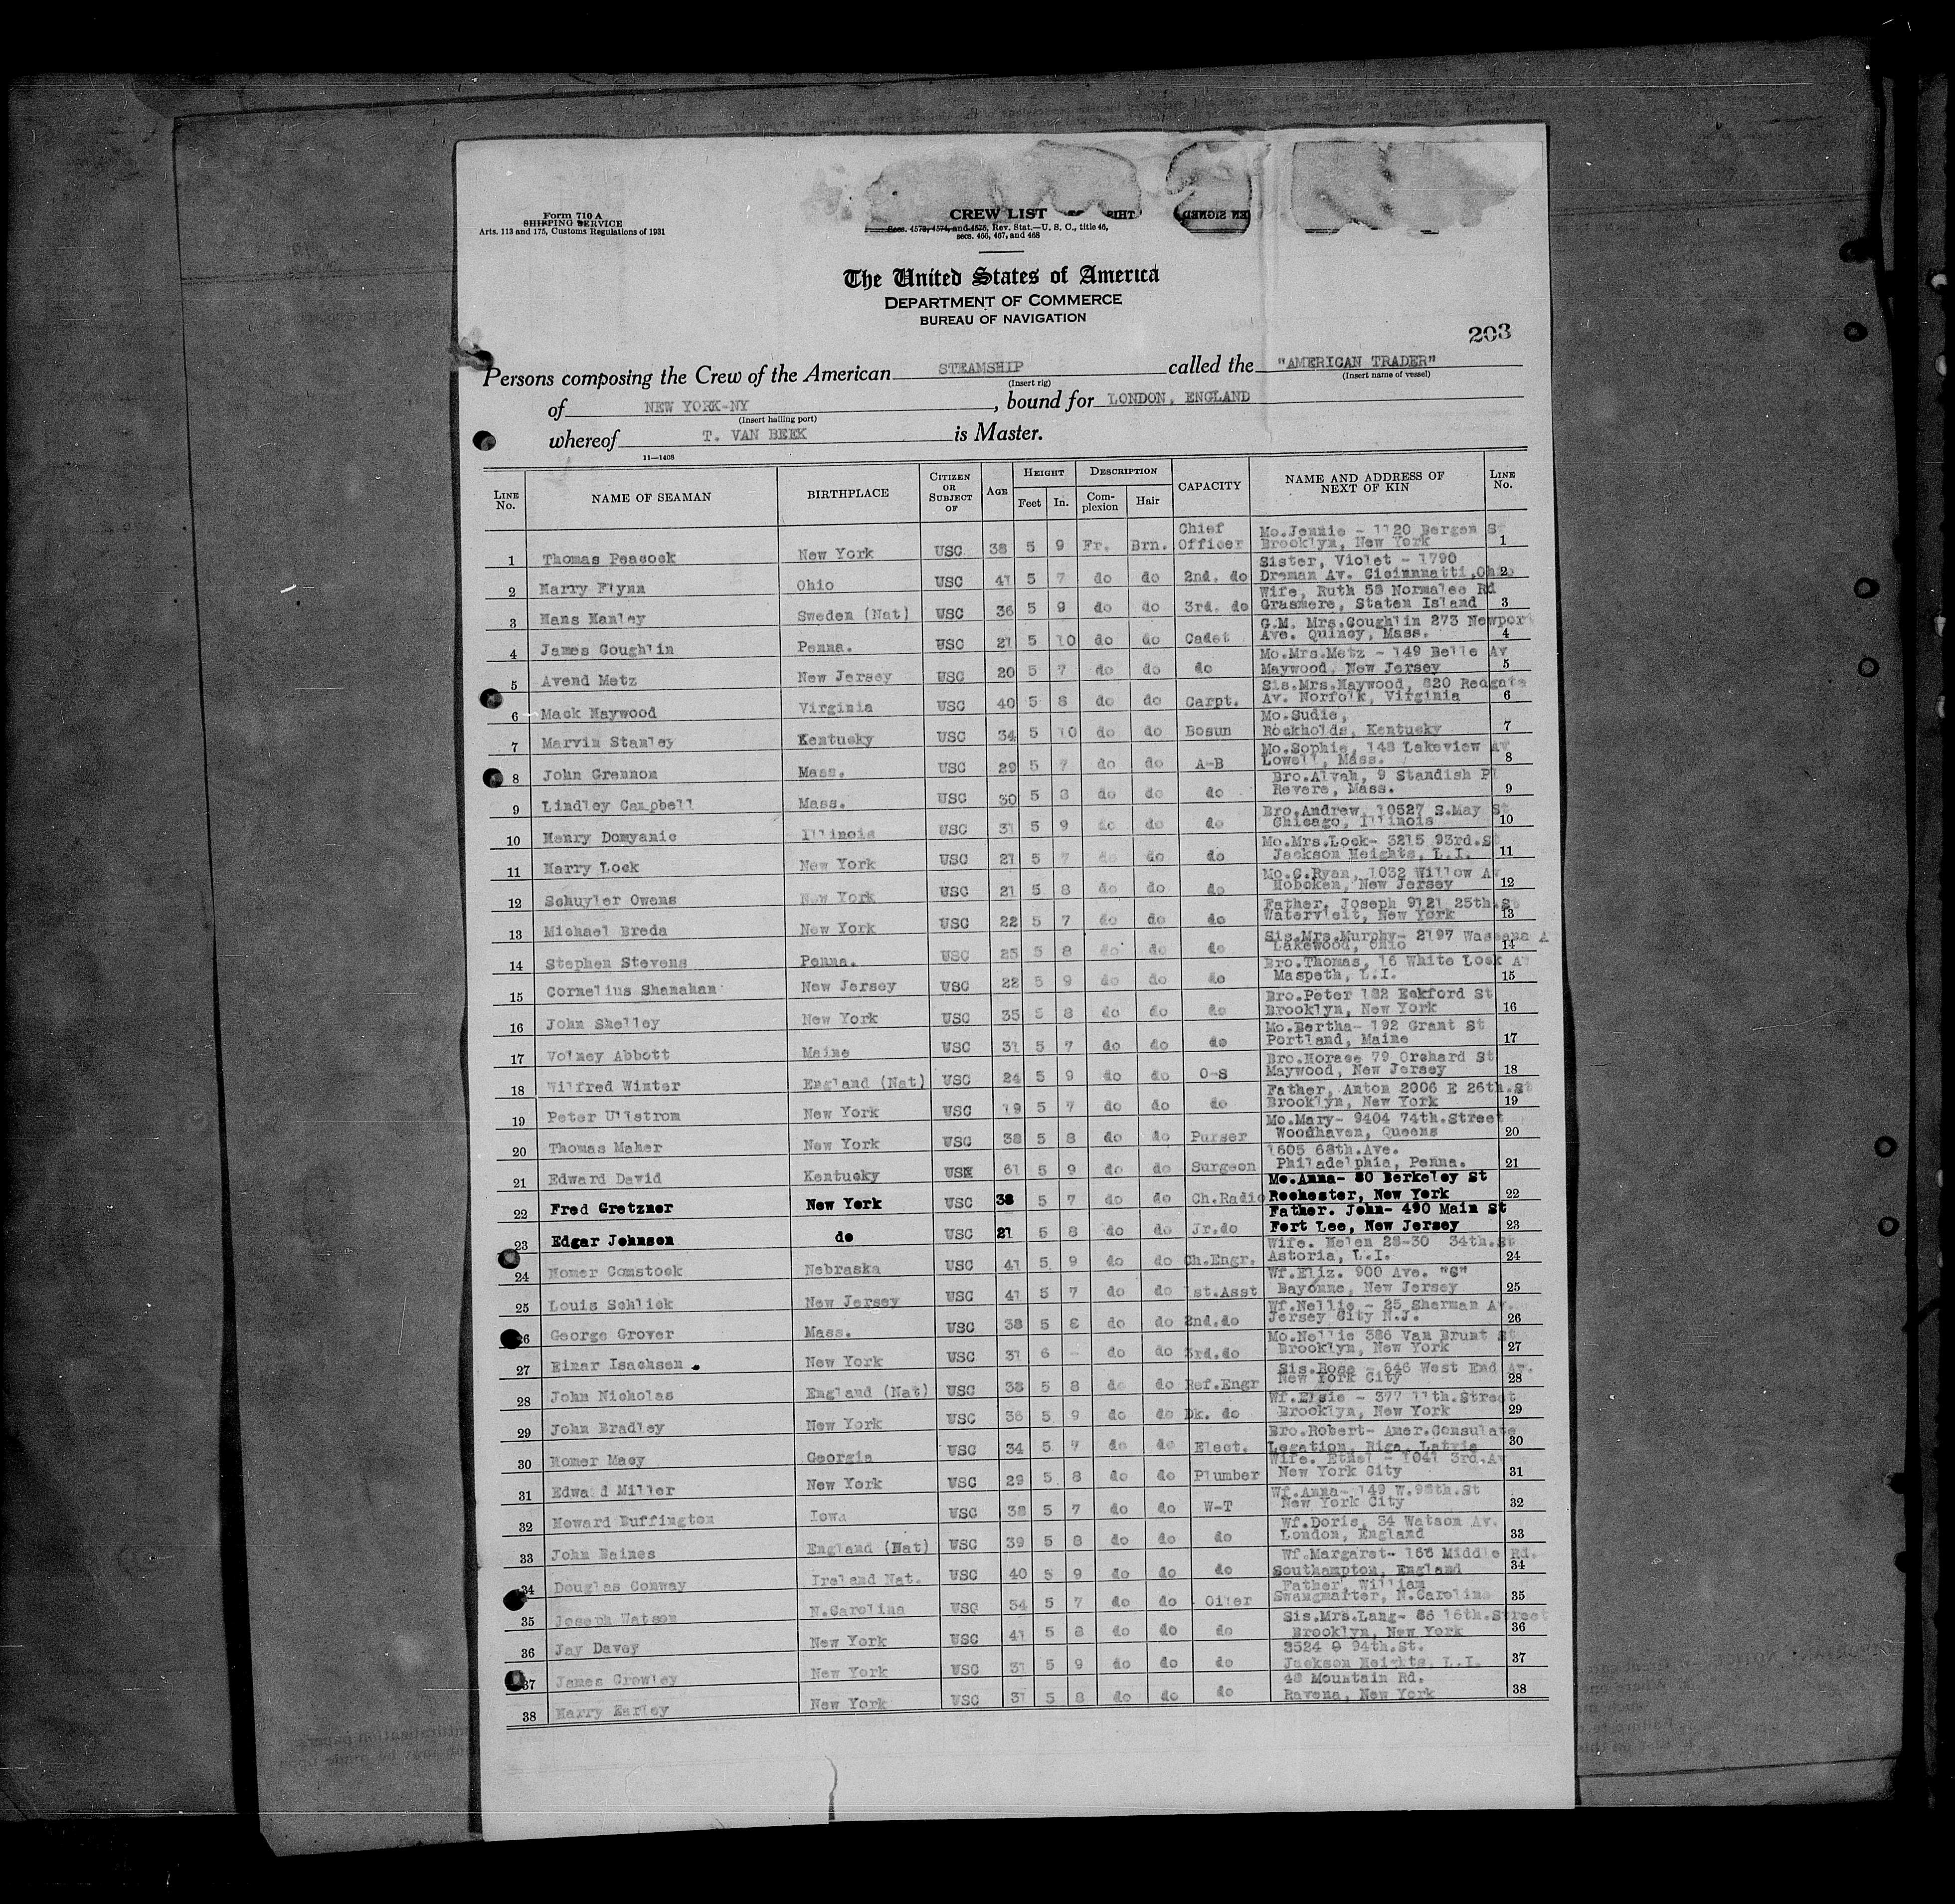 Form 710 A
SHIPPING SERVICE
Arts. 113 and 175, Customs Regulations of 1931
CREW LIST
Secs. 4573, 4574, and 4575, Rev. Stat.—U. S. C., title 46,
secs. 466, 467, and 468
The United States of America
DEPARTMENT OF COMMERCE
BUREAU OF NAVIGATION
203
Persons composing the Crew of the American STEAMSHIP called the "AMERICAN TRADER"
(Insert rig) (Insert name of vessel)
of NEW YORK-NY, bound for LONDON, ENGLAND
(Insert hailing port)
whereof T. VAN BEEK is Master.
11—1408
LINE No. NAME OF SEAMAN BIRTHPLACE CITIZEN OR SUBJECT OF AGE HEIGHT Feet In. DESCRIPTION Complexion Hair CAPACITY NAME AND ADDRESS OF NEXT OF KIN LINE No.
1 Thomas Peacock New York USC 38 5 9 Fr. Brn. Chief Officer Mo.Jennie - 1120 Bergen St Brooklyn, New York 1
2 Harry Flynn Ohio USC 41 5 7 do do 2nd. do Sister, Violet - 1790 Dreman Av. Cicinnnatti,Ohio 2
3 Hans Hanley Sweden (Nat) USC 36 5 9 do do 3rd. do Wife, Ruth 58 Normalee Rd Grasmere, Staten Island 3
4 James Coughlin Penna. USC 21 5 10 do do Cadet G.M. Mrs.Coughlin 273 Newport Ave. Quincy, Mass. 4
5 Avend Metz New Jersey USC 20 5 7 do do do Mo.Mrs.Metz - 149 Belle Av Maywood, New Jersey 5
6 Mack Haywood Virginia USC 40 5 8 do do Carpt. Sis.Mrs.Haywood, 820 Redgate Av. Norfolk, Virginia 6
7 Marvin Stanley Kentucky USC 34 5 10 do do Bosun Mo.Sudie, Rockholds, Kentucky 7
8 John Grennon Mass. USC 29 5 7 do do A-B Mo.Sophie, 148 Lakeview Av Lowell, Mass. 8
9 Lindley Campbell Mass. USC 30 5 8 do do do Bro.Alvah, 9 Standish Pl Revere, Mass. 9
10 Henry Domyanic Illinois USC 31 5 9 do do do Bro.Andrew, 10527 S.May St Chicago, Illinois 10
11 Harry Lock New York USC 21 5 7 do do do Mo.Mrs.Lock- 3215 93rd.St Jackson Heights, L.I. 11
12 Schuyler Owens New York USC 21 5 8 do do do Mo.C.Ryan, 1032 Willow Av Hoboken, New Jersey 12
13 Michael Breda New York USC 22 5 7 do do do Father, Joseph 9121 25th.St Watervleit, New York 13
14 Stephen Stevens Penna. USC 25 5 8 do do do Sis.Mrs.Murphy- 2197 A Lakewood, Ohio 14
15 Cornelius Shanahan New Jersey USC 22 5 9 do do do Bro.Thomas, 16 White Lock Av Maspeth, L.I. 15
16 John Shelley New York USC 35 5 8 do do do Bro.Peter 182 Eckford St Brooklyn, New York 16
17 Volney Abbott Maine USC 31 5 7 do do do Mo.Bertha- 192 Grant St Portland, Maine 17
18 Wilfred Winter England (Nat) USC 24 5 9 do do O-S Bro.Horace 79 Orchard St Maywood, New Jersey 18
19 Peter Ullstrom New York USC 19 5 7 do do do Father, Anton 2006 E 26th.St Brooklyn, New York 19
20 Thomas Maher New York USC 38 5 8 do do Purser Mo.Mary- 9404 74th.Street Woodhaven, Queens 20
21 Edward David Kentucky USE 61 5 9 do do Surgeon 1605 68th.Ave. Philadelphia, Penna. 21
22 Fred Gretzner New York USC 38 5 7 do do Ch.Radio Mo.Anna- 80 Berkeley St Rochester, New York 22
23 Edgar Johnson do USC 21 5 8 do do Jr.do Father. John- 490 Main St Fort Lee, New Jersey 23
24 Homer Comstock Nebraska USC 41 5 9 do do Ch.Engr. Wife. Helen 28-30 34th.St Astoria, L.I. 24
25 Louis Schlick New Jersey USC 41 5 7 do do 1st.Asst Wf.Eliz. 900 Ave. "C" Bayonne, New Jersey 25
26 George Grover Mass. USC 38 5 8 do do 2nd.do Wf.Nellie - 25 Sherman Av. Jersey City N.J. 26
27 Einar Isachsen . New York USC 31 6 - do do 3rd.do Mo.Nellie 386 Van Brunt St Brooklyn, New York 27
28 John Nicholas England (Nat) USC 38 5 8 do do Ref.Engr Sis.Rose - 646 West End Av. New York City 28
29 John Bradley New York USC 36 5 9 do do Dk. do Wf.Elsie - 377 11th.Street Brooklyn, New York 29
30 Homer Macy Georgia USC 34 5 7 do do Elect. Bro.Robert- Amer.Consulate Legation, Riga, Latvia 30
31 Edward Miller New York USC 29 5 8 do do Plumber Wife. Ethel - 1041 3rd.Av New York City 31
32 Howard Buffington Iowa USC 38 5 7 do do W-T Wf.Anna- 149 W.98th.St New York City 32
33 John Baines England (Nat) USC 39 5 8 do do do Wf.Doris, 34 Watson Av. London, England 33
34 Douglas Conway Ireland Nat. USC 40 5 9 do do do Wf.Margaret- 166 Middle Rd. Southampton, England 34
35 Joseph Watson N.Carolina USC 34 5 7 do do Oiler Father, William Swanquarter, N.Carolina 35
36 Jay Davey New York USC 41 5 8 do do do Sis.Mrs.Lang- 86 16th.Street Brooklyn, New York 36
37 James Crowley New York USC 31 5 9 do do do 3524 94th.St. Jackson Heights, L.I. 37
38 Harry Earley New York USC 31 5 8 do do do 48 Mountain Rd. Ravena, New York 38